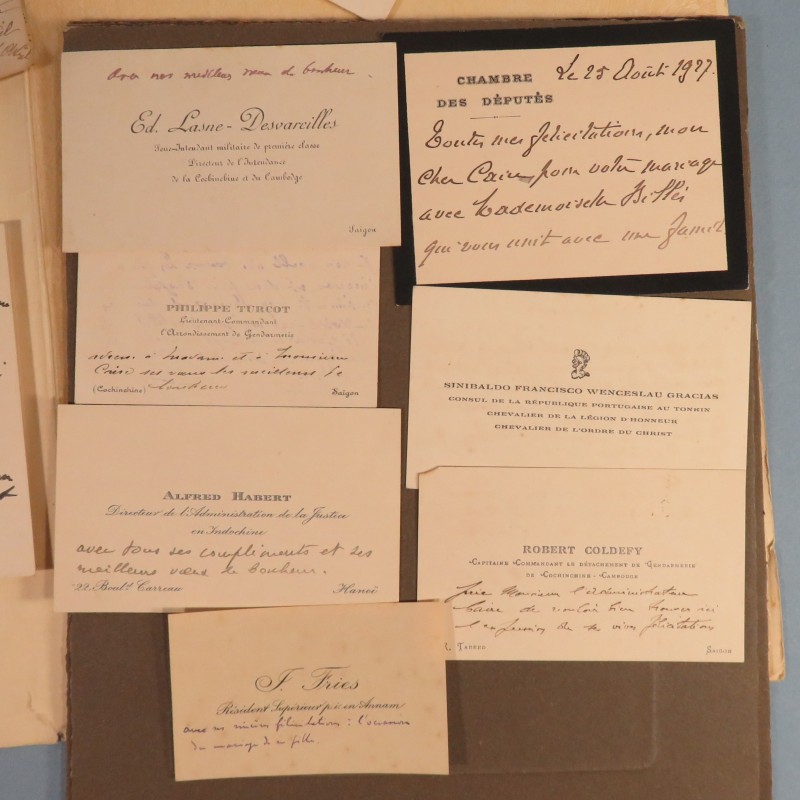 Avec nos meilleurs vœux de bonheur.
Ed. Lasne-Desvareilles
Sous-Intendant militaire de première classe
Directeur de l'Intendance
de la Cochinchine et du Cambodge
Saigon
CHAMBRE
DES DÉPUTÉS
Le 25 Août 1927.
Toutes mes félicitations, mon
cher Caire pour votre mariage
avec Mademoiselle
qui vous unit avec une famil
PHILIPPE TURCOT
Lieutenant-Commandant
l'Arrondissement de Gendarmerie
adresse à Madame et à Monsieur
Caire ses vœux les meilleurs de
(Cochinchine) bonheur
Saïgon
SINIBALDO FRANCISCO WENCESLAU GRACIAS
CONSUL DE LA RÉPUBLIQUE PORTUGAISE AU TONKIN
CHEVALIER DE LA LÉGION D'HONNEUR
CHEVALIER DE L'ORDRE DU CHRIST
ALFRED HABERT
Directeur de l'Administration de la Justice
en Indochine
avec tous ses compliments et ses
meilleurs vœux de bonheur.
22 Boulᵗ Carreau
Hanoï
ROBERT COLDEFY
CAPITAINE COMMANDANT LE DÉTACHEMENT DE GENDARMERIE
DE COCHINCHINE - CAMBODGE
prie Monsieur l'Administrateur
Caire de vouloir bien trouver ici
l'expression de ses vives félicitations
TABERD
SAIGON
J. Fries
Résident Supérieur p.i. en Annam
avec ses sincères félicitations à l'occasion
du mariage de sa fille.